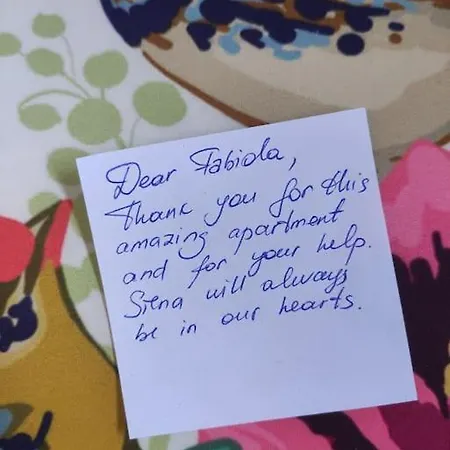 Dear Fabiola,
Thank you for this
amazing apartment
and for your help.
Siena will always
be in our hearts.